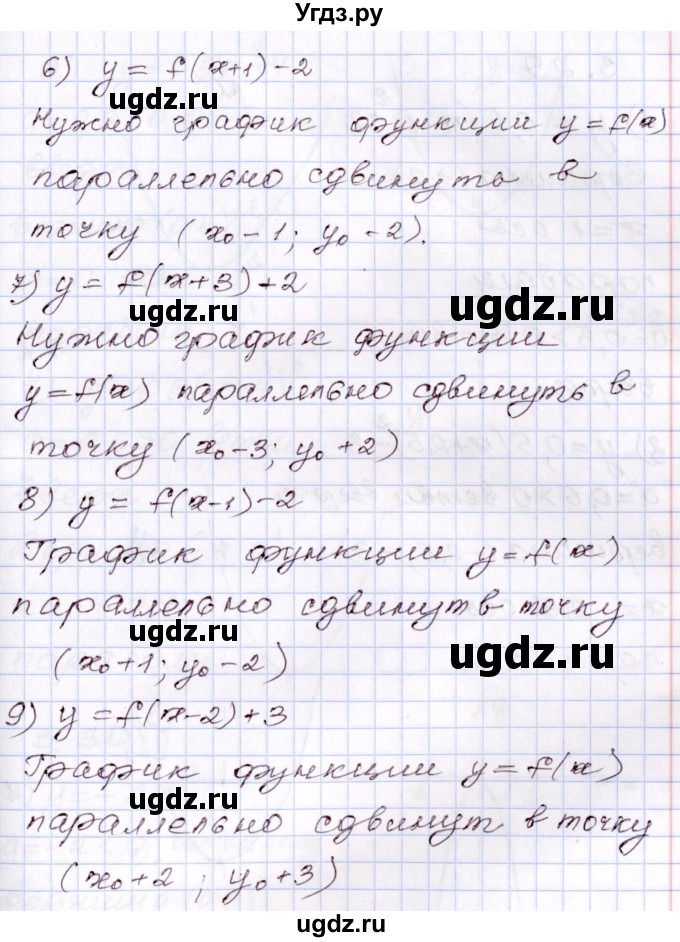 Угдз.ру
6) y = f(x+1)-2
Нужно график функции y=f(x)
параллельно сдвинуть в
точку (x₀-1; y₀-2).
7) y = f(x+3)+2
Нужно график функции
y=f(x) параллельно сдвинуть в
точку (x₀-3; y₀+2)
8) y = f(x-1)-2
График функции y=f(x)
параллельно сдвинут в точку
(x₀+1; y₀-2)
9) y=f(x-2)+3
График функции y=f(x)
параллельно сдвинут в точку
(x₀+2; y₀+3)
ugdz.ru
ugdz.ru
ugdz.ru
ugdz.ru
ugdz.ru
ugdz.ru
ugdz.ru
ugdz.ru